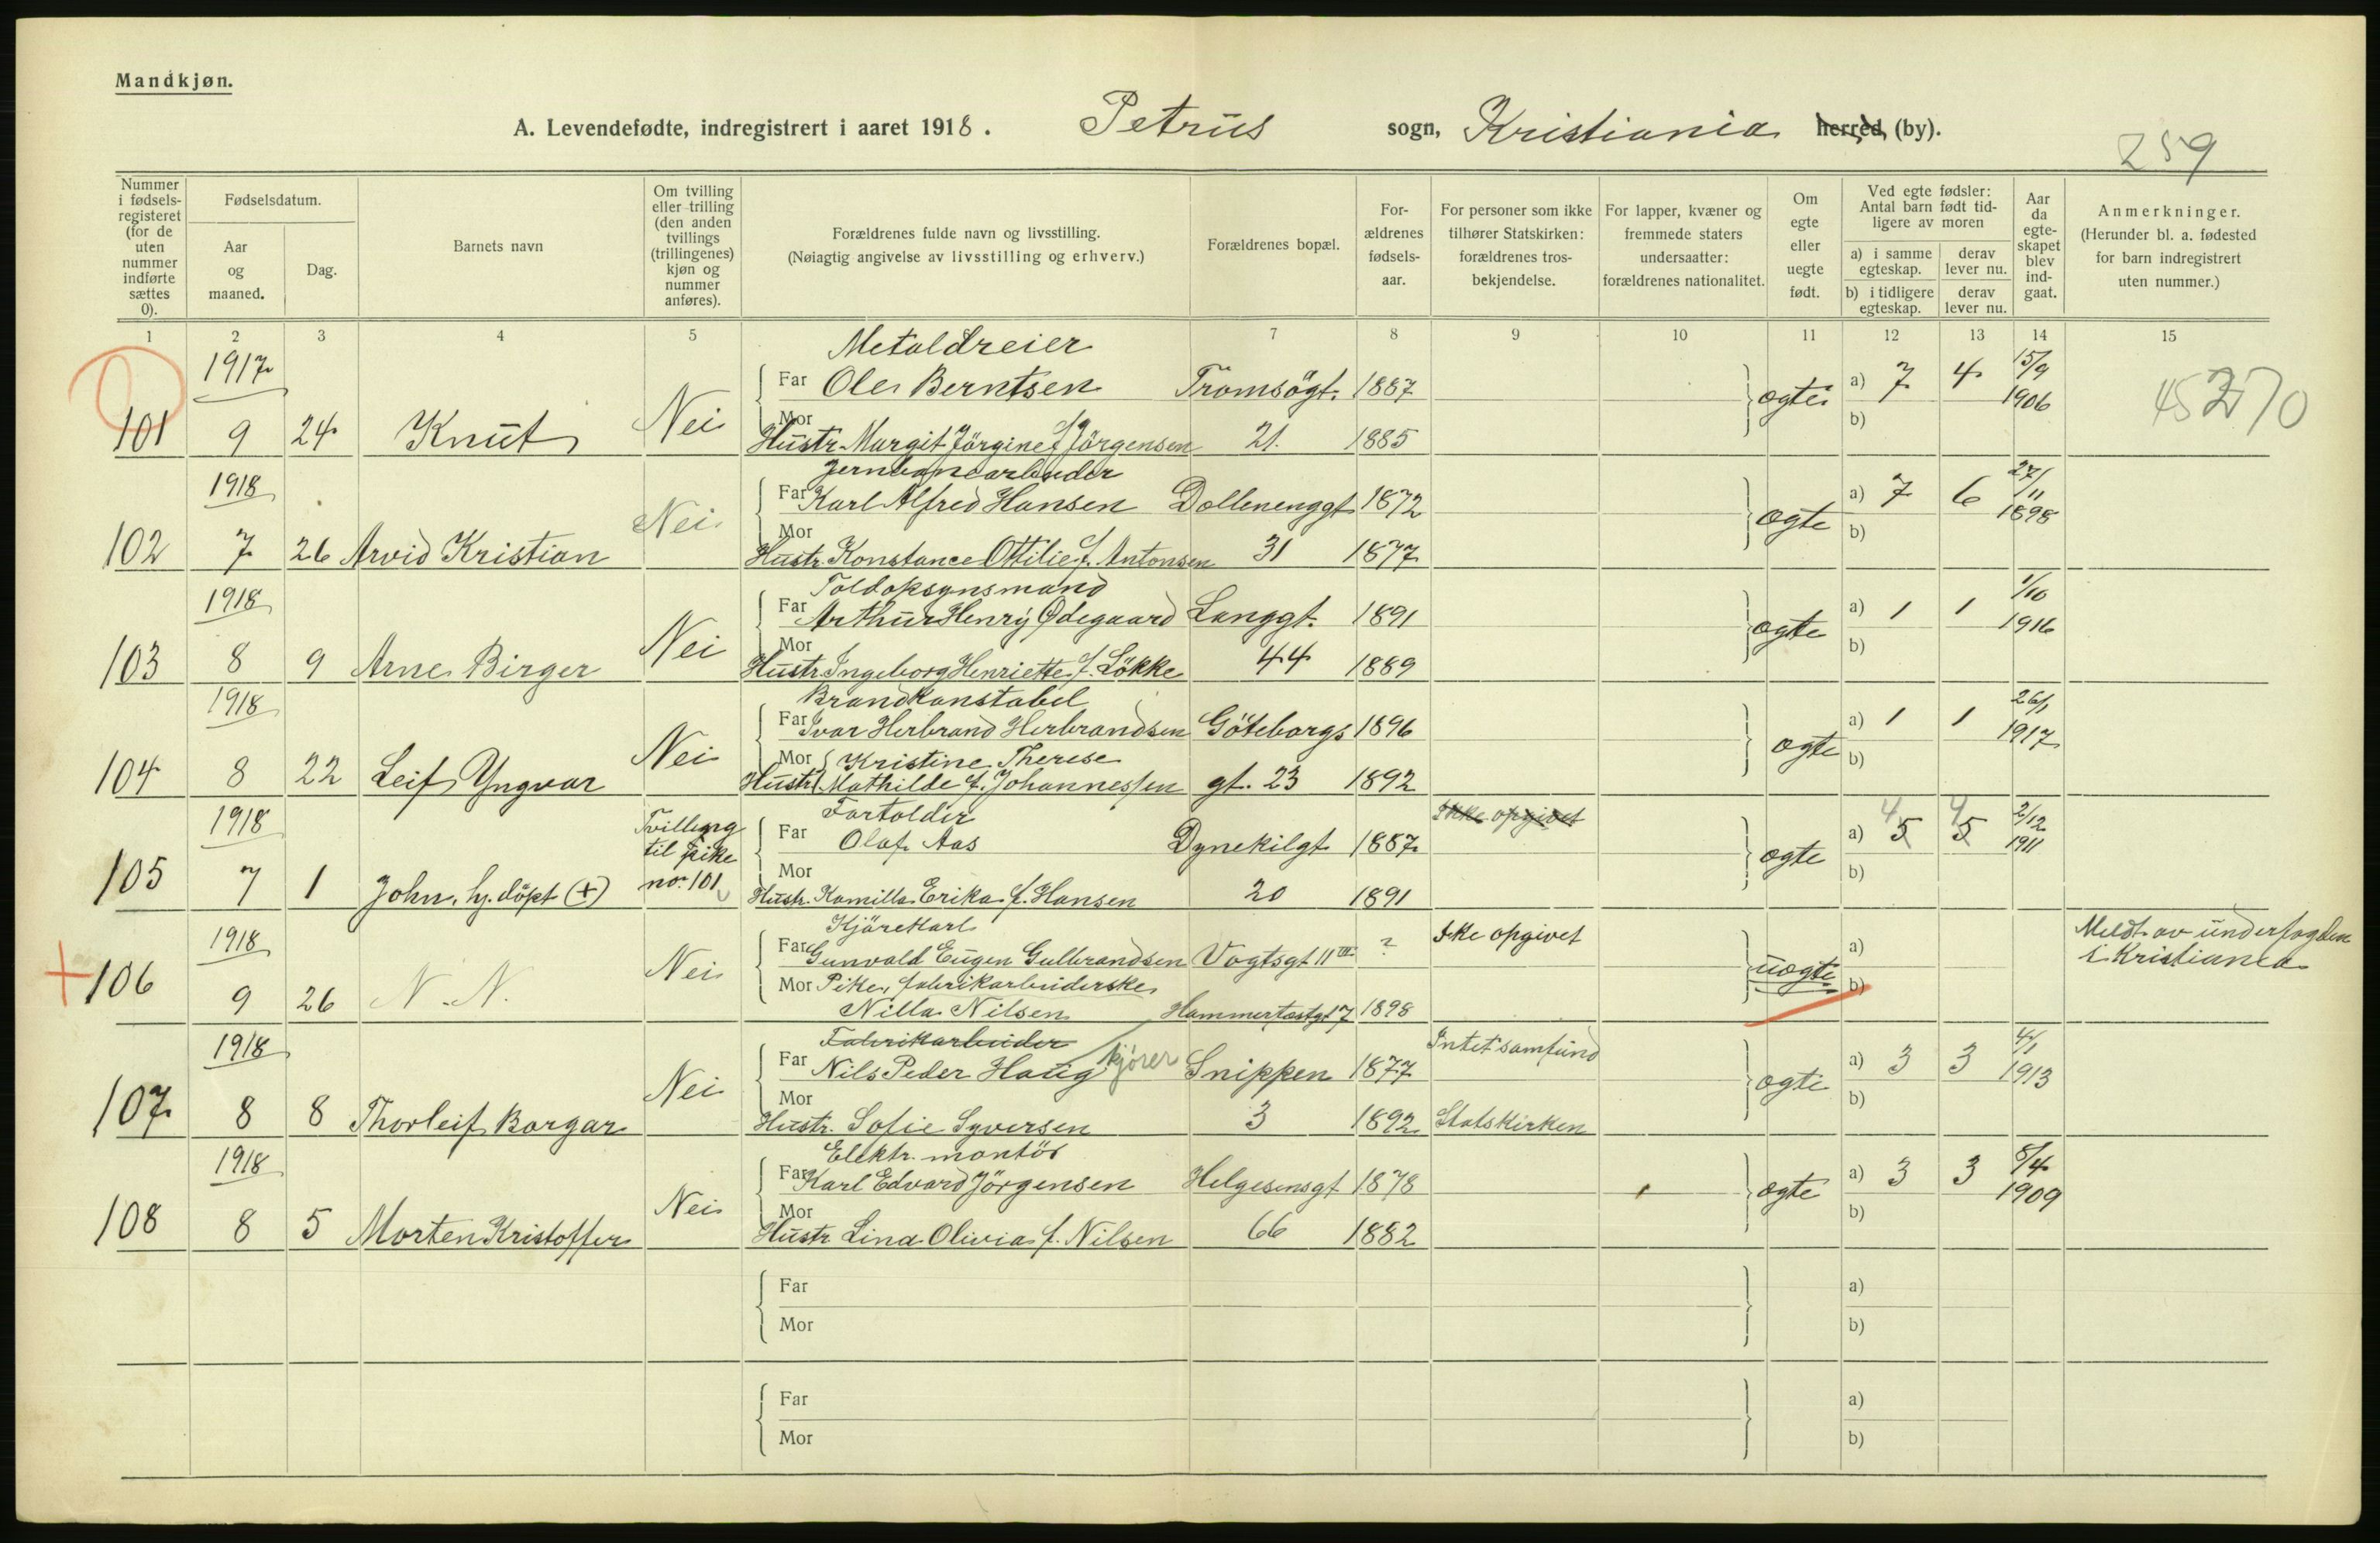 Mandkjøn.
A. Levendefødte, indregistrert i aaret 1918. Petrus sogn, Kristiania herred, (by).
259
Nummer i fødsels-registeret (for de uten nummer indførte sættes 0).
Fødselsdatum.
Aar og maaned.
Dag.
Barnets navn
Om tvilling eller trilling (den anden tvillings (trillingenes) kjøn og nummer anføres).
Forældrenes fulde navn og livsstilling.
(Nøiagtig angivelse av livsstilling og erhverv.)
Forældrenes bopæl.
For-ældrenes fødsels-aar.
For personer som ikke tilhører Statskirken: forældrenes tros-bekjendelse.
For lapper, kvæner og fremmede staters undersaatter: forældrenes nationalitet.
Om egte eller uegte født.
Ved egte fødsler: Antal barn født tid-ligere av moren
a) i samme egteskap.
derav lever nu.
b) i tidligere egteskap.
derav lever nu.
Aar da egte-skapet blev ind-gaat.
Anmerkninger.
(Herunder bl. a. fødested for barn indregistrert uten nummer.)
1 2 3 4 5 6 7 8 9 10 11 12 13 14 15
1917 Metaldreier
Far Ole Berntsen Tromsögt. 1887 ægte a) 7 4 15/9 1906
101 9 24 Knut Nei Mor Hustr. Margit Jörgine f. Jörgensen 21. 1885 b)
1918 Jernbanearbeider
Far Karl Alfred Hansen Dællenenggt 1872 ægte a) 7 6 27/11 1898
102 7 26 Arvid Kristian Nei Mor Hustr. Konstance Ottilie f. Antonsen 31 1877 b)
1918 Toldopsynsmand
Far Arthur Henry Ødegaard Langgt. 1891 ægte a) 1 1 1/10 1916
103 8 9 Arne Birger Nei Mor Hustr. Ingeborg Henriette f. Lökke 44 1889 b)
1918 Brandkonstabel
Far Ivar Herbrand Herbrandsen Göteborgs 1896 ægte a) 1 1 26/1 1917
Mor Kristine Therese
104 8 22 Leif Yngvar Nei Hustr. Mathilde f. Johannessen gt. 23 1892 b)
1918 Tvilling til pike no. 101 Fortolder Ikke opgivet
Far Olaf Aas Dynekilgt 1887 ægte a) 4 5 4 5 2/12 1911
105 7 1 John, hj. döpt (+) Mor Hustr. Kamilla Erika f. Hansen 20 1891 b)
1918 Kjörekarl Ikke opgivet Meldt av underfogden i Kristiania
Far Gunvald Eugen Gulbrandsen Vogtsgt 11 III ? uægte a)
+ 106 9 26 N. N. Nei Mor Pike, fabrikarbeiderske b)
Nilla Nilsen Hammerfæstgt 7 1898
1918 Fabrikarbeider kjører Intet samfund
Far Nils Peder Haug Snippen 1877 ægte a) 3 3 4/1 1913
107 8 8 Thorleif Borgar Nei Mor Hustr. Sofie Syversen 3 1892 Statskirken b)
1918 Elektr. montör
Far Karl Edvard Jörgensen Helgesensgt 1878 ægte a) 3 3 8/4 1909
108 8 5 Morten Kristoffer Nei Mor Hustr. Lina Olivia f. Nilsen 66 1882 b)
Far a)
Mor b)
Far a)
Mor b)